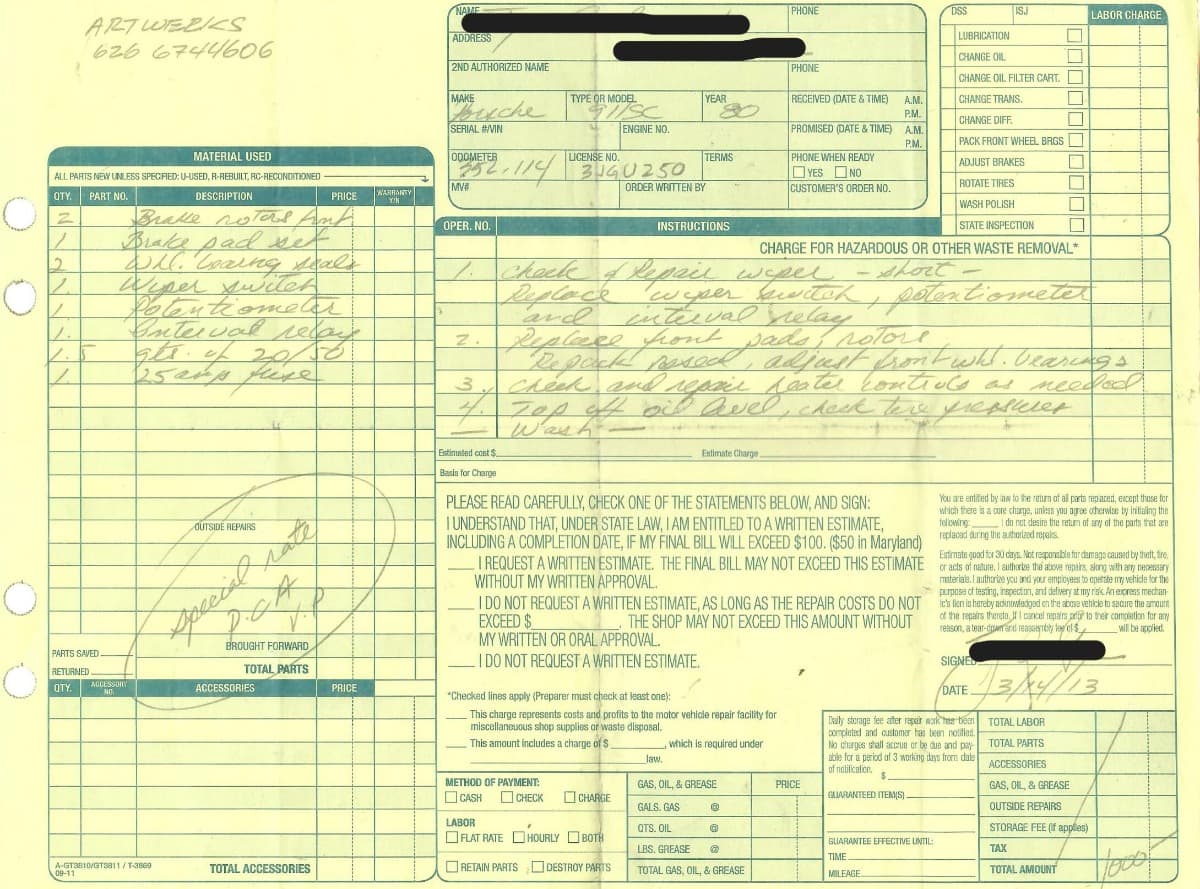 ARTWERKS
626 6744606
NAME
PHONE
ADDRESS
2ND AUTHORIZED NAME
PHONE
MAKE
Porsche
TYPE OR MODEL
911SC
YEAR
80
RECEIVED (DATE & TIME) A.M.
P.M.
SERIAL #/VIN
ENGINE NO.
PROMISED (DATE & TIME) A.M.
P.M.
ODOMETER
352,114
LICENSE NO.
3JGU250
TERMS
PHONE WHEN READY
YES NO
MV#
ORDER WRITTEN BY
CUSTOMER'S ORDER NO.
DSS
ISJ
LABOR CHARGE
LUBRICATION
CHANGE OIL
CHANGE OIL FILTER CART.
CHANGE TRANS.
CHANGE DIFF.
PACK FRONT WHEEL BRGS
ADJUST BRAKES
ROTATE TIRES
WASH POLISH
STATE INSPECTION
MATERIAL USED
ALL PARTS NEW UNLESS SPECIFIED: U-USED, R-REBUILT, RC-RECONDITIONED
QTY. PART NO. DESCRIPTION PRICE WARRANTY Y/N
2 Brake rotors frnt
1 Brake pad set
2 Whl. bearing seals
1. Wiper switch
1. Potentiometer
1. Interval relay
1.5 qts. of 20/50
1. 25 amp fuse
OUTSIDE REPAIRS
special rate
P.C.A
V.P
BROUGHT FORWARD
PARTS SAVED
RETURNED
TOTAL PARTS
QTY. ACCESSORY NO. ACCESSORIES PRICE
A-GT3810/GT3811 / T-3869
09-11
TOTAL ACCESSORIES
OPER. NO. INSTRUCTIONS
CHARGE FOR HAZARDOUS OR OTHER WASTE REMOVAL*
1. Check & Repair wiper - short -
Replace wiper switch, potentiometer
and interval relay
2. Replace front pads, rotors
Repack adjust front whl. bearings
3. Check and repair heater controls as needed
4. Top off oil level, check tire pressures
— Wash —
Estimated cost $ Estimate Charge
Basis for Charge
PLEASE READ CAREFULLY, CHECK ONE OF THE STATEMENTS BELOW, AND SIGN:
I UNDERSTAND THAT, UNDER STATE LAW, I AM ENTITLED TO A WRITTEN ESTIMATE,
INCLUDING A COMPLETION DATE, IF MY FINAL BILL WILL EXCEED $100. ($50 in Maryland)
I REQUEST A WRITTEN ESTIMATE. THE FINAL BILL MAY NOT EXCEED THIS ESTIMATE
WITHOUT MY WRITTEN APPROVAL.
I DO NOT REQUEST A WRITTEN ESTIMATE, AS LONG AS THE REPAIR COSTS DO NOT
EXCEED $ . THE SHOP MAY NOT EXCEED THIS AMOUNT WITHOUT
MY WRITTEN OR ORAL APPROVAL.
I DO NOT REQUEST A WRITTEN ESTIMATE.
*Checked lines apply (Preparer must check at least one):
This charge represents costs and profits to the motor vehicle repair facility for
miscellaneous shop supplies or waste disposal.
This amount includes a charge of $ , which is required under
law.
You are entitled by law to the return of all parts replaced, except those for
which there is a core charge, unless you agree otherwise by initialing the
following: I do not desire the return of any of the parts that are
replaced during the authorized repairs.
Estimate good for 30 days. Not responsible for damage caused by theft, fire,
or acts of nature. I authorize the above repairs, along with any necessary
materials. I authorize you and your employees to operate my vehicle for the
purpose of testing, inspection, and delivery at my risk. An express mechan-
ic's lien is hereby acknowledged on the above vehicle to secure the amount
of the repairs thereto. If I cancel repairs prior to their completion for any
reason, a tear-down and reassembly fee of $ will be applied.
SIGNED
DATE 3/14/13
METHOD OF PAYMENT:
CASH CHECK CHARGE
LABOR
FLAT RATE HOURLY BOTH
RETAIN PARTS DESTROY PARTS
GAS, OIL, & GREASE PRICE
GALS. GAS @
QTS. OIL @
LBS. GREASE @
TOTAL GAS, OIL, & GREASE
Daily storage fee after repair work has been
completed and customer has been notified.
No charges shall accrue or be due and pay-
able for a period of 3 working days from date
of notification.
$
GUARANTEED ITEM(S)
GUARANTEE EFFECTIVE UNTIL:
TIME
MILEAGE
TOTAL LABOR
TOTAL PARTS
ACCESSORIES
GAS, OIL, & GREASE
OUTSIDE REPAIRS
STORAGE FEE (if applies)
TAX
TOTAL AMOUNT 1000